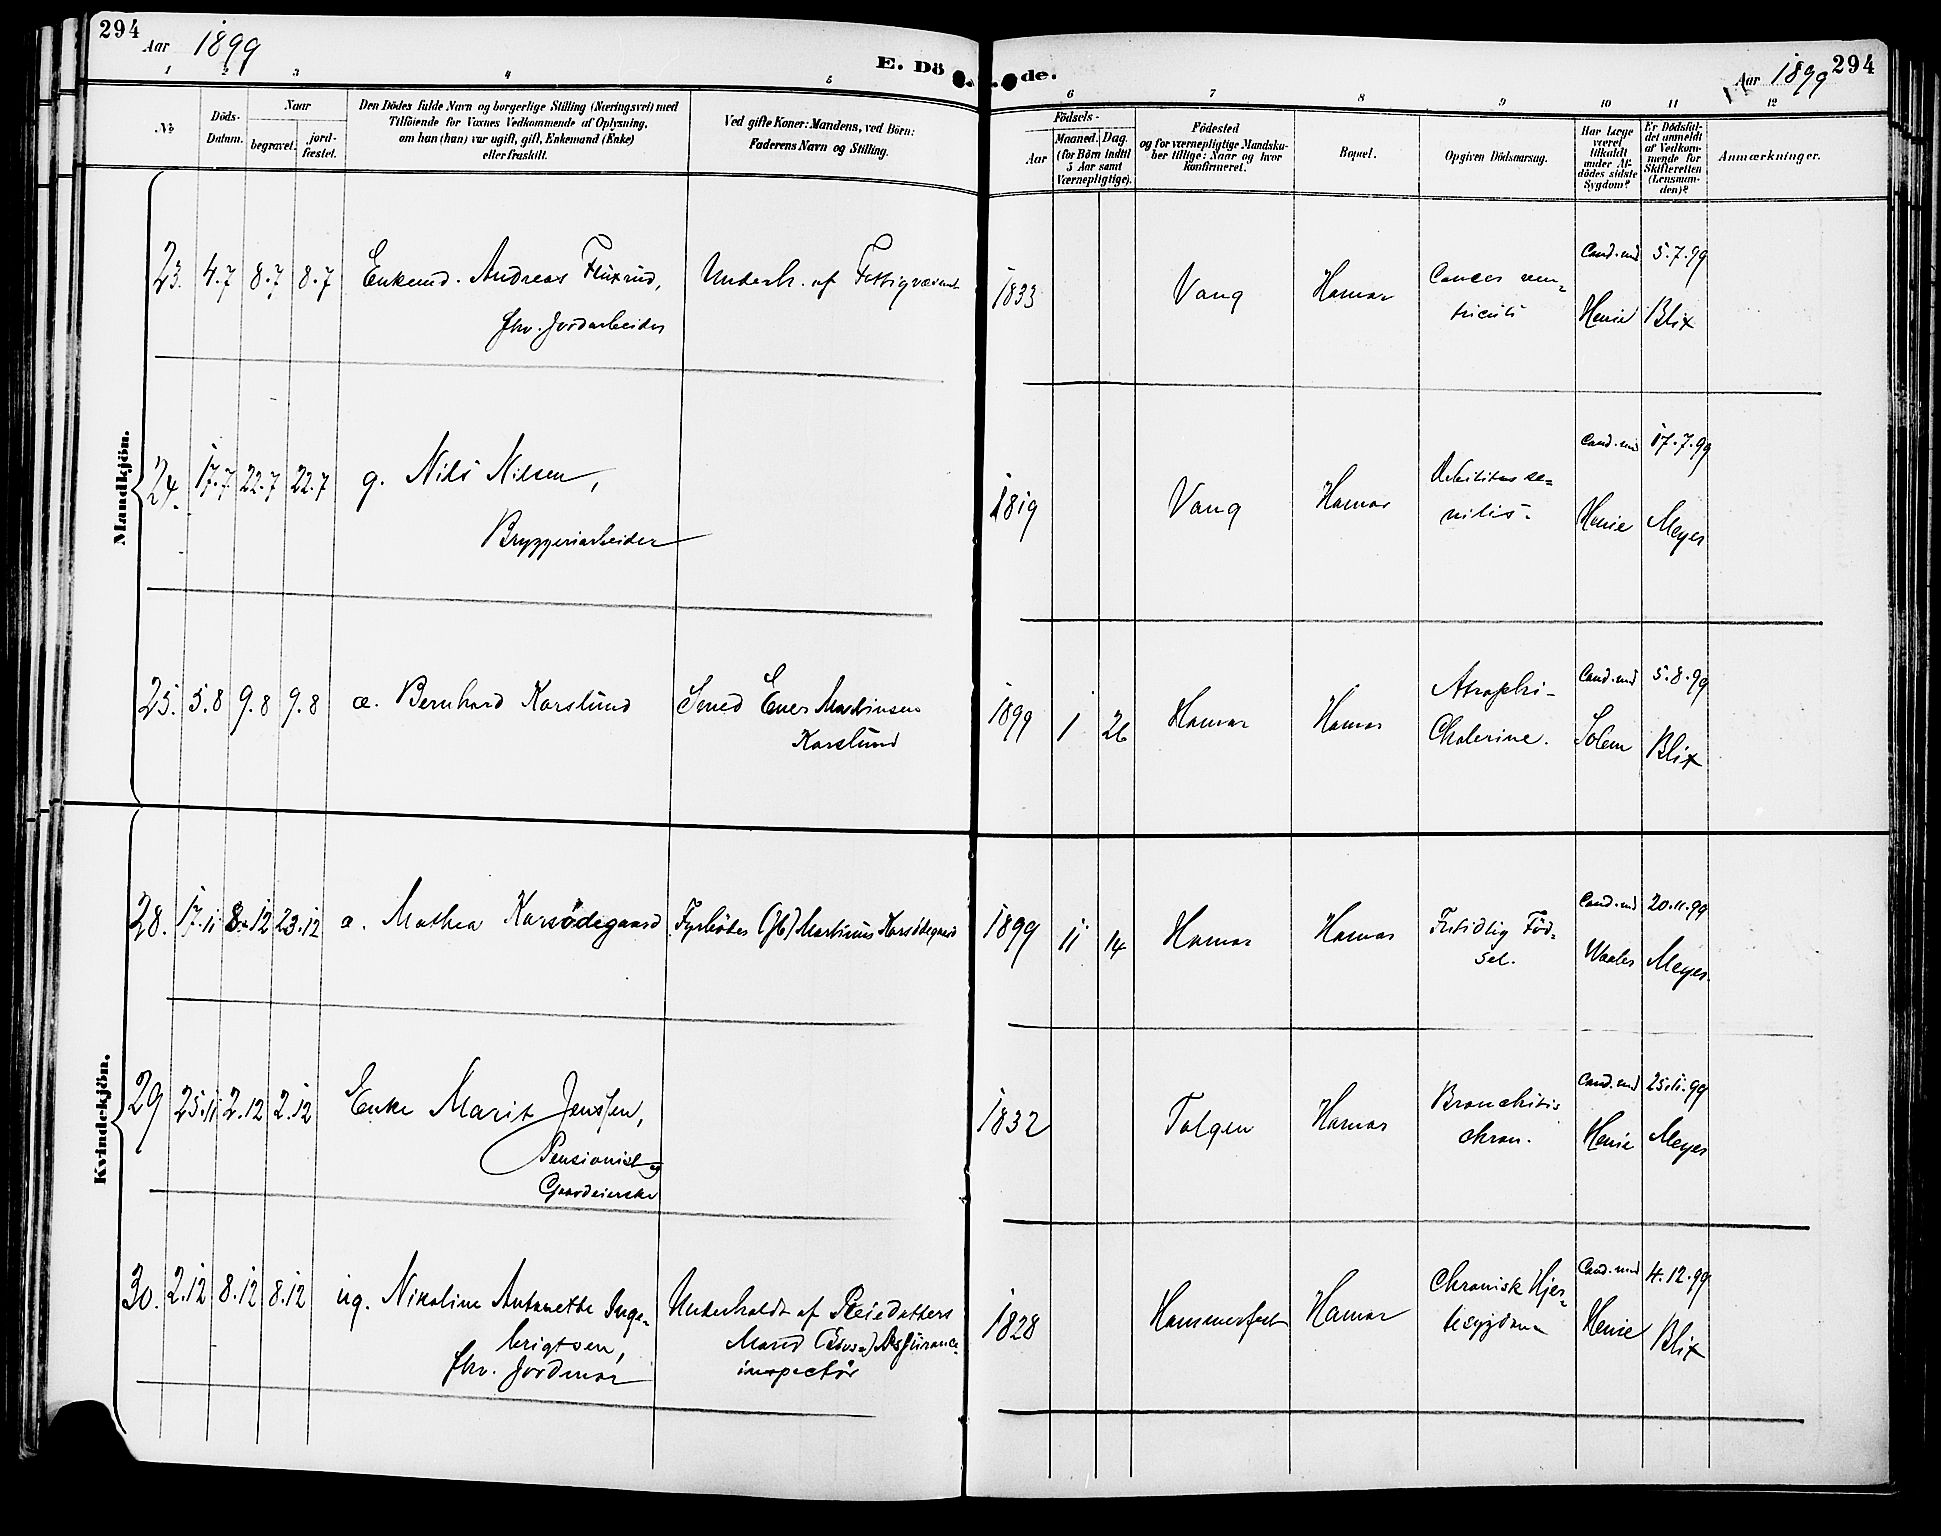 294
Aar 1899
E. Dö
de.
Aar 1899
294
1 2 3 4 5
6 7 8 9 10 11 12
No
Döds-
Datum.
Naar
begravet.
jord-
fæstet.
Den Dödes fulde Navn og borgerlige Stilling (Næringsvei) med
Tilföiende for Voxnes Vedkommende af Oplysning,
om hun (han) var ugift, gift, Enkemand (Enke)
eller fraskilt.
Ved gifte Koner: Mandens, ved Börn:
Faderens Navn og Stilling.
Födsels-
Aar
Maaned. Dag.
(for Börn indtil
5 Aar samt
Værnepligtige).
Födested
og for værnepligtige Mandska-
ber tillige: Naar og hvor
Konfirmeret.
Bopæl.
Opgiven Dödsaarsag.
Har Læge
været
tilkaldt
under Af-
dödes sidste
Sygdom?
Er Dödsfal-
det anmeldt
af Vedkom-
mende for
Skifteretten
(Lensman-
den)?
Anmærkninger.
Mandkjön.
23. 4.7 8.7 8.7 Enkemd. Andreas
fhv. Jordarbeider
Underh. af Fattigvæsenet
1833 Vang Hamar Cancer ven-
triculi
Cand. md
Henie
5.7.99
Blix
24. 17.7 22.7 22.7 g. Nils Nilsen,
Bryggeriarbeider
1819 Vang Hamar Debilitas se-
nilis.
Cand. md
Henie
17.7.99
Meyer
25. 5.8 9.8 9.8 æ. Bernhard Karslund
Smed Ener Martinsen
Karslund
1899 1 26 Hamar Hamar Atrophi-
Cholerine.
Cand. md
Solem
5.8.99
Blix
Kvindekjön.
28. 17.11 8.12 23.12 æ. Mathea Karsödegaard
Fyrböter Martinus Karsödegaard
1899 11 14 Hamar Hamar Fortidlig Föd-
sel.
Cand. md
Waaler
20.11.99
Meyer.
29 25.11 2.12 2.12 Enke Marit Jenssen,
Pensionist og
Gaardeierske
1832 Tolgen Hamar Bronchitis
chron.
Cand. md
Henie
25.11.99
Meyer
30. 2.12 8.12 8.12 ug. Nikoline Antonette Inge-
brigtsen,
fhv. Jordmor
Underholdt af Pleiedatters
Mand Assurance-
inspectör
1828 Hammerfest Hamar Chronisk Hjer-
tesygdom
Cand. med
Henie
4.12.99
Blix